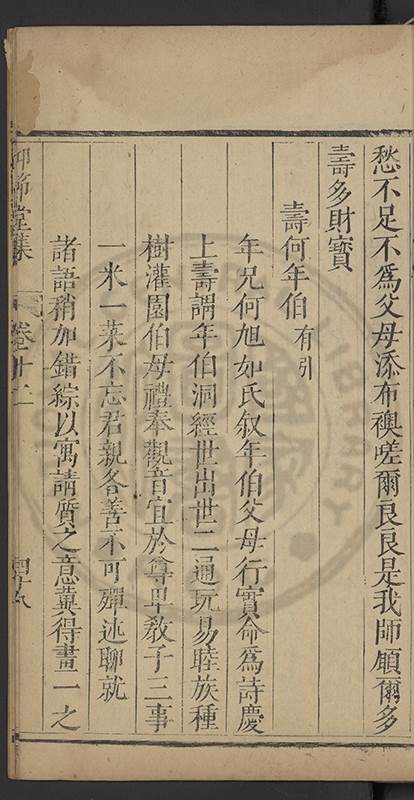 愁不足不爲父母添布襖嗟爾良良是我師願爾多
壽多財寶
壽何年伯有引
年兄何旭如氏叙年伯父母行實命爲詩慶
上壽謂年伯洞經世出世二通玩易睦族種
樹灌園伯母禮奉觀音宜於尊卑教子三事
一米一菜不忘君親各善不可殫述聊就
諸語稍加錯綜以寓請質之意冀得畫一之
仰節堂集
卷十二
四十八